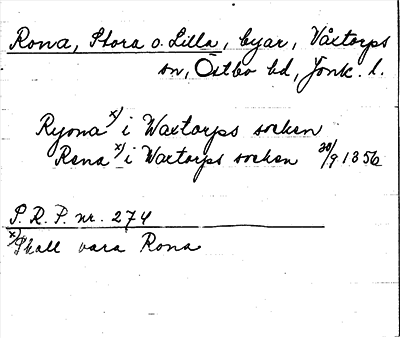 Rona, Stora o. Lilla, byar, Våxtorps
sn, Östbo hd, Jönk. l.
Ryona x) i Waxtorps socken
Rena x) i Waxtorps socken 30/9 1356
P. R. P. nr. 274
x) Skall vara Rona